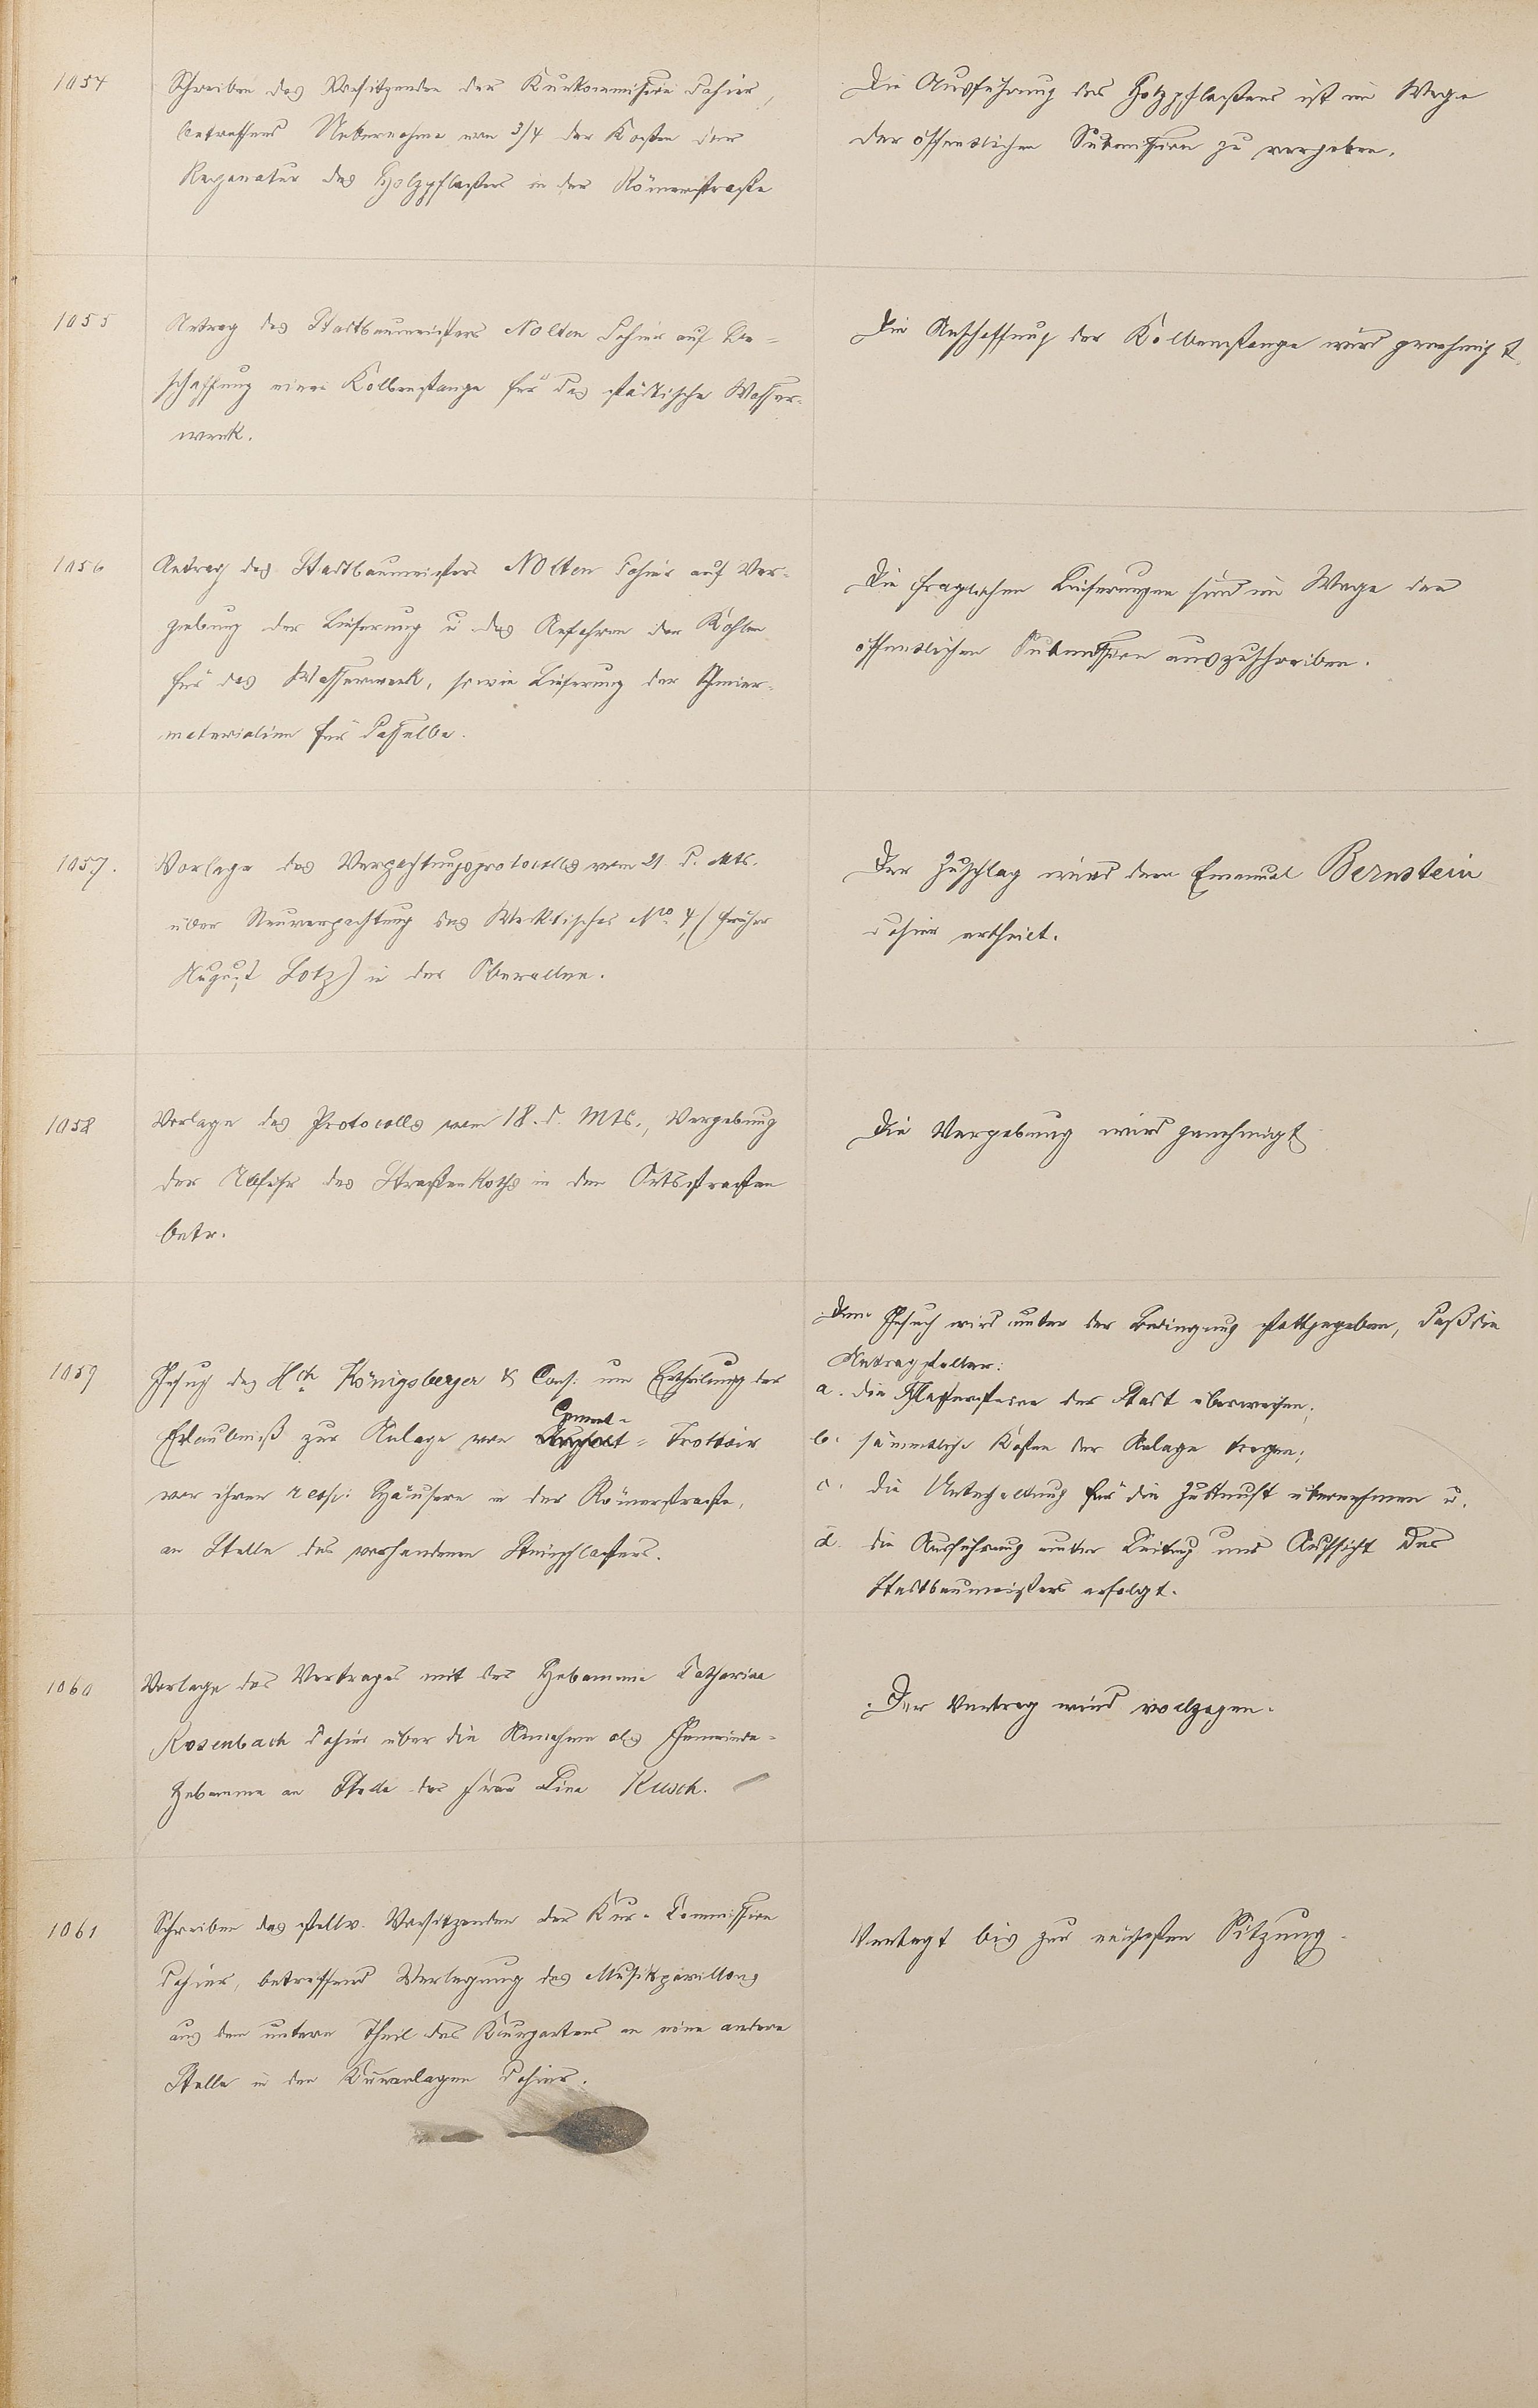 1054
Schreiben des Vorsitzenden der Kurkommission dahier,
betreffend Uebernahme von 3/4 der Kosten der
Reparatur des Holzpflasters in der Römerstraße
Die Ausführung des Holzpflasters ist im Wege
der öffentlichen Submission zu vergeben.
1055
Antrag des Stadtbaumeisters Nolten dahier auf Be=
schaffung einer Kolbenstange für das städtische Wasser=
werk.
Die Anschaffung der Kolbenstange wird genehmigt.
1056
Antrag des Stadtbaumeisters Nolten dahier auf Ver=
gebung der Lieferung u das Anfahren der Kohlen
für das Wasserwerk, sowie Lieferung der Schmier=
materialien für dasselbe.
Die fraglichen Lieferungen sind im Wege der
öffentlichen Submission auszuschreiben.
1057.
Vorlage des Verpachtungsprotocolls vom 21. d. Mts.
über Neuverpachtung des Marktisches No. 4, (früher
August Lotz) in der Oberallee.
Der Zuschlag wird dem Emanuel Bernstein
dahier ertheilt.
1058
Vorlage des Protocolls vom 18. d. Mts., Vergebung
der Abfuhr des Straßenkoths in den Ortsstraßen
betr.
Die Vergebung wird genehmigt
1059
Gesuch des Hch Königsberger & Cons: um Ertheilung der
Erlaubniß zur Anlage von Cement= Trottoir
vor ihren resp: Häusern in der Römerstraße,
an Stelle des vorhandenen Steinpflasters.
Dem Gesuch wird unter der Bedingung stattgegeben, daß die
Antragsteller:
a. die Pflastersteine der Stadt überweisen;
b. sämmtliche Kosten der Anlage tragen;
c. die Unterhaltung für die Zukunft übernehmen u.
d. die Ausführung unter Leitung und Aufsicht des
Stadtbaumeisters erfolgt.
1060
Vorlage des Vertrages mit der Hebamme Catharina
Rosenbach dahier über die Annahme als Gemeinde=
Hebamme an Stelle der Frau Lina Kusch.
Der Vertrag wird vollzogen.
1061
Schreiben des stellv. Vorsitzenden der Kur= Commission
dahier, betreffend Verlegung des Musikpavillons
aus dem untern Theil des Kurgartens an eine andere
Stelle in den Kuranlagen dahier.
Vertagt bis zur nächsten Sitzung.